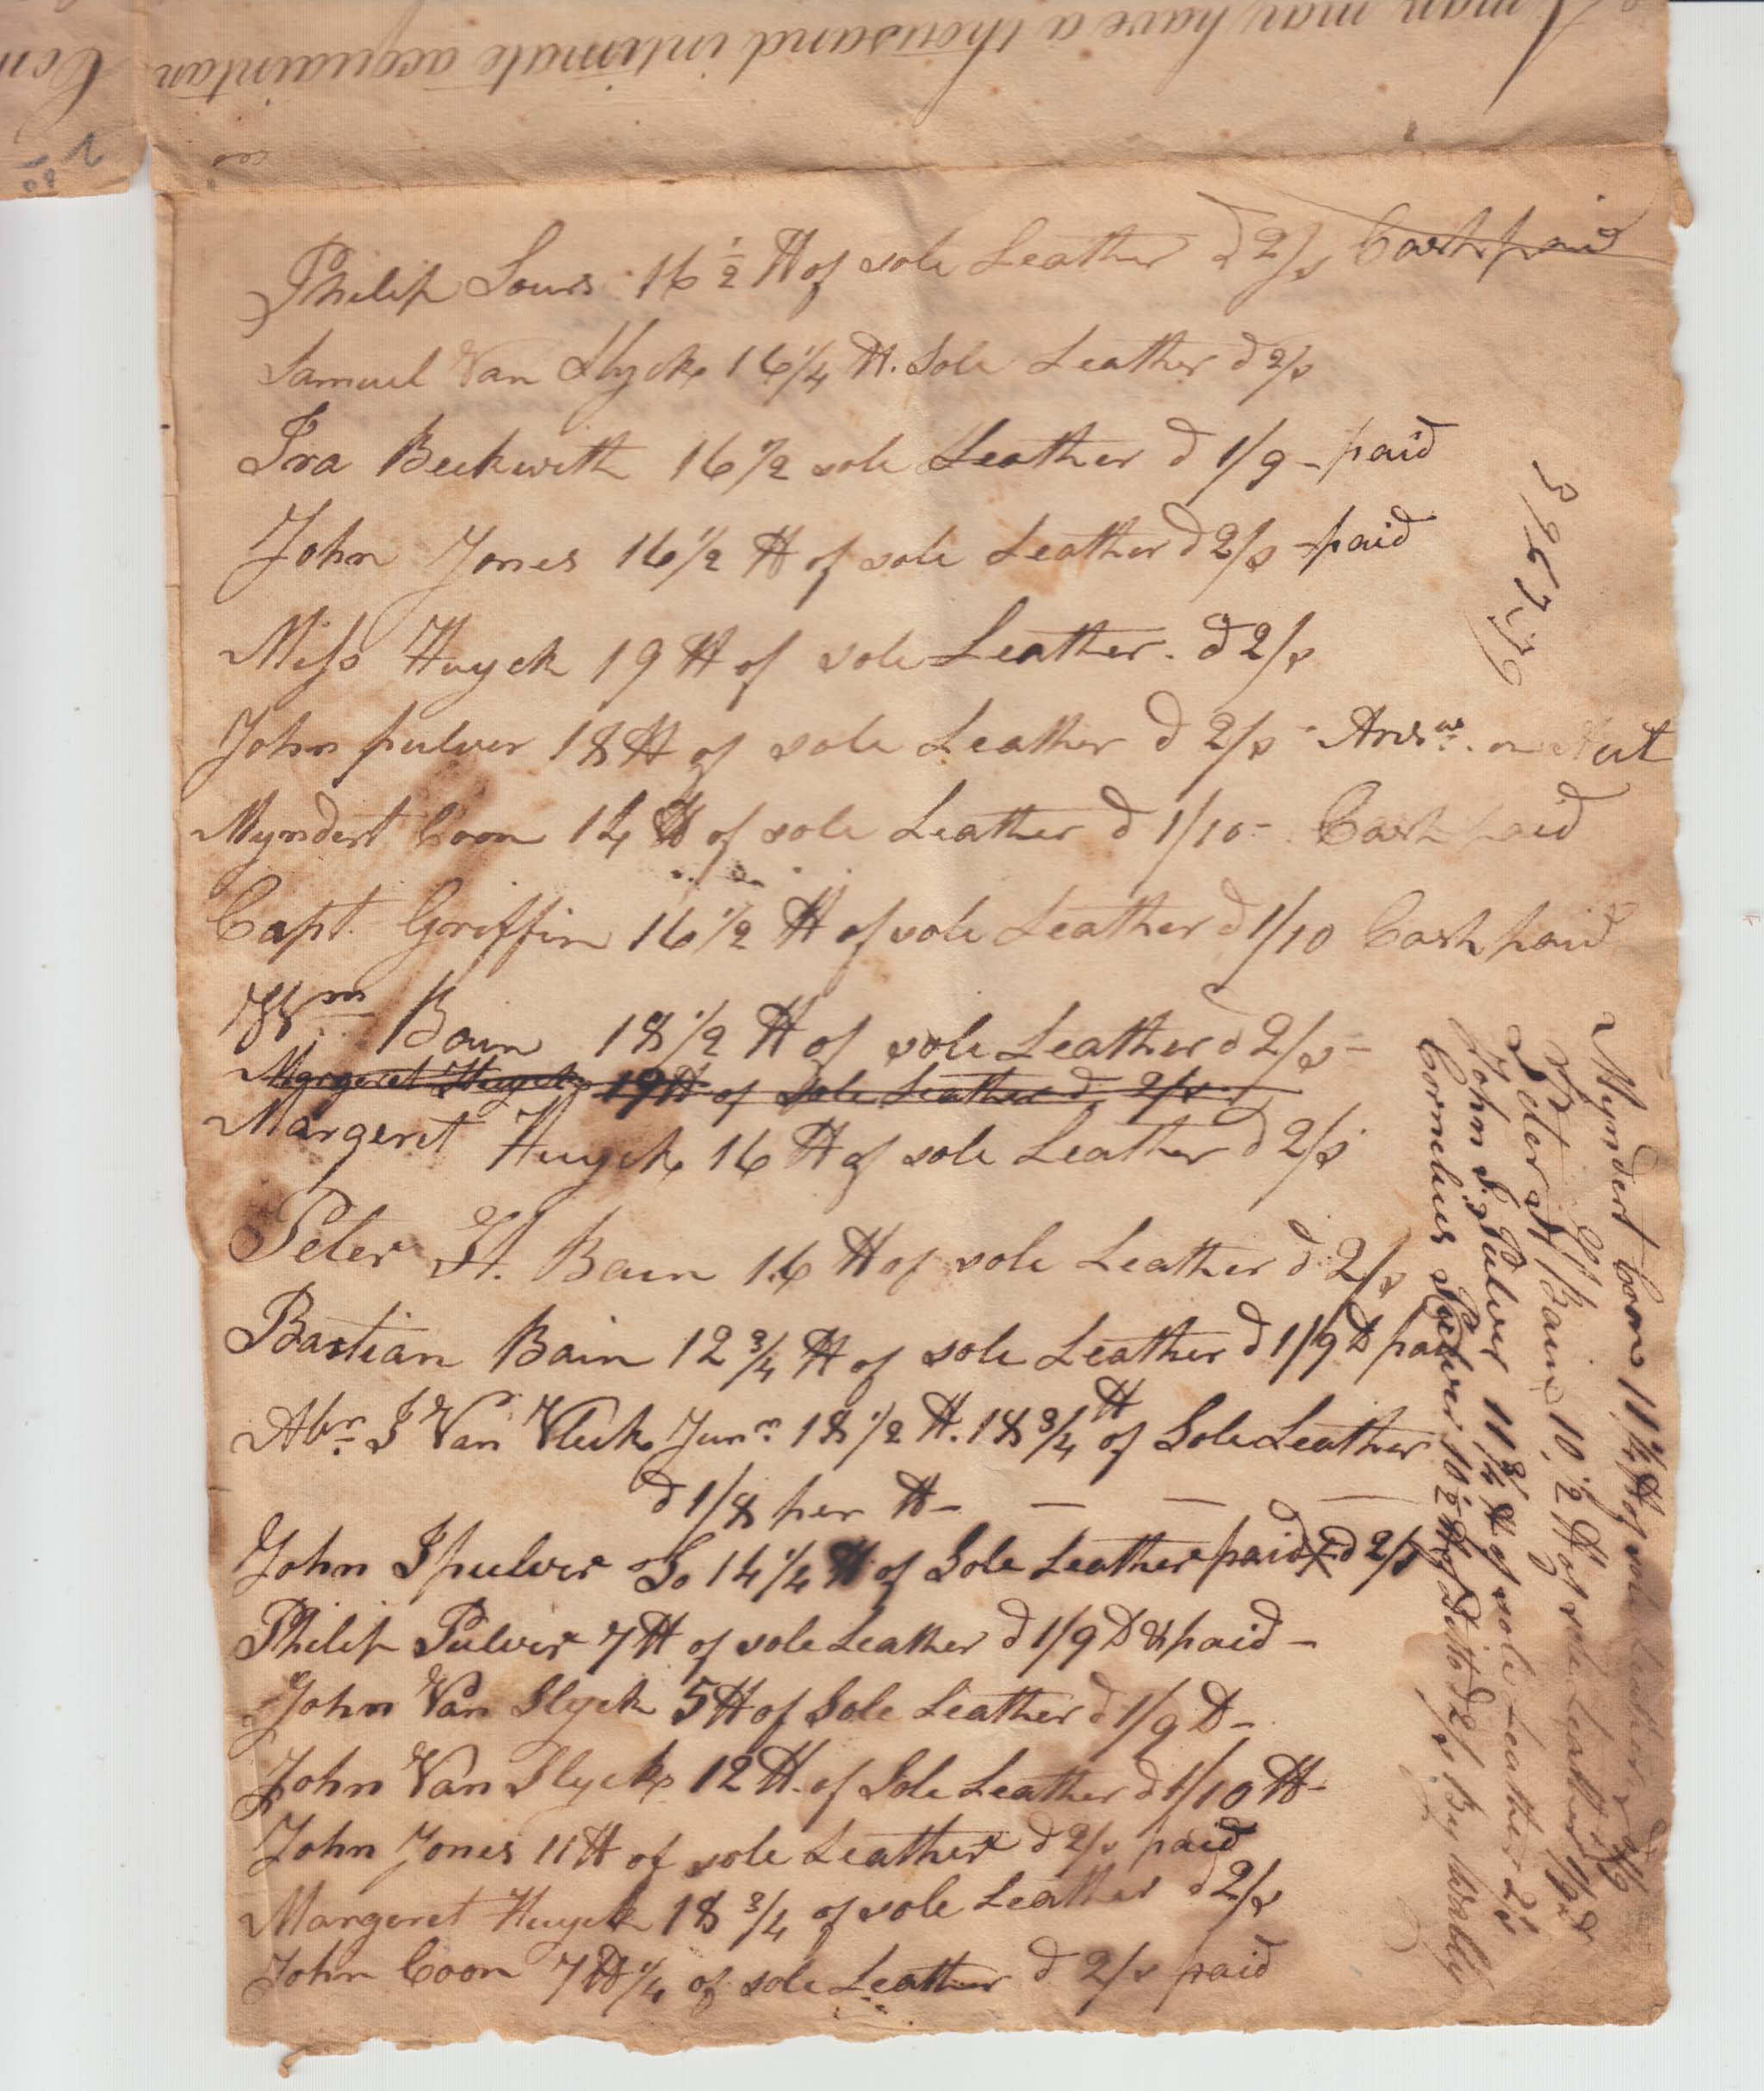 man may have a thousand intimate acquaintan
Con
Philip Sours 16 1/2 ℔ of sole Leather @ 2/s Cash paid
Samuel Van Slyck 16 1/4 ℔. Sole Leather @ 2/s
Ira Beckwith 16 1/2 sole Leather @ 1/9 - paid
John Jones 16 1/2 ℔ of sole Leather @ 2/s - paid
Miss Huyck 19 ℔ of sole Leather. @ 2/s
John pulver 18 ℔ of sole Leather @ 2/s -
Myndert Coon 14 ℔ of sole Leather @ 1/10 - Cash paid
Capt. Griffin 16 1/2 ℔ of sole Leather @ 1/10 Cash paid
Wm Bain 18 1/2 ℔ of sole Leather @ 2/s -
Margeret Huyck 19 ℔ of Sole Leather @ 2/s
Margeret Huyck 16 ℔ of sole Leather @ 2/s
Peter H. Bain 16 ℔ of sole Leather @ 2/s
Bastian Bain 12 3/4 ℔ of sole Leather @ 1/9 ℔ paid
Abr. J Van Vleck Junr. 18 1/2 ℔. 18 3/4 ℔ of Sole Leather
@ 1/8 per ℔ - - - -
John J pulver Do 14 1/4 ℔ of Sole Leather paid @ 2/s
Philip Pulver 7 ℔ of sole Leather @ 1/9 ℔ & paid -
John Van Slyck 5 ℔ of Sole Leather @ 1/9 ℔ -
John Van Slyck 12 ℔. of Sole Leather @ 1/10 ℔ -
John Jones 11 ℔ of sole Leather @ 2/s paid
Margeret Huyck 18 3/4 of sole Leather @ 2/s
John Coon 7 ℔ 1/4 of sole Leather @ 2/s paid
Myndert Coon 11 1/4 ℔ of sole Leather
Peter H Bain 10 1/2 ℔ of sole Leather 1/9
John J. Pulver 11 3/4 ℔ of sole Leather 2/s
Cornelius Pulver 10 1/2 ℔ of Ditto @ 2/s By